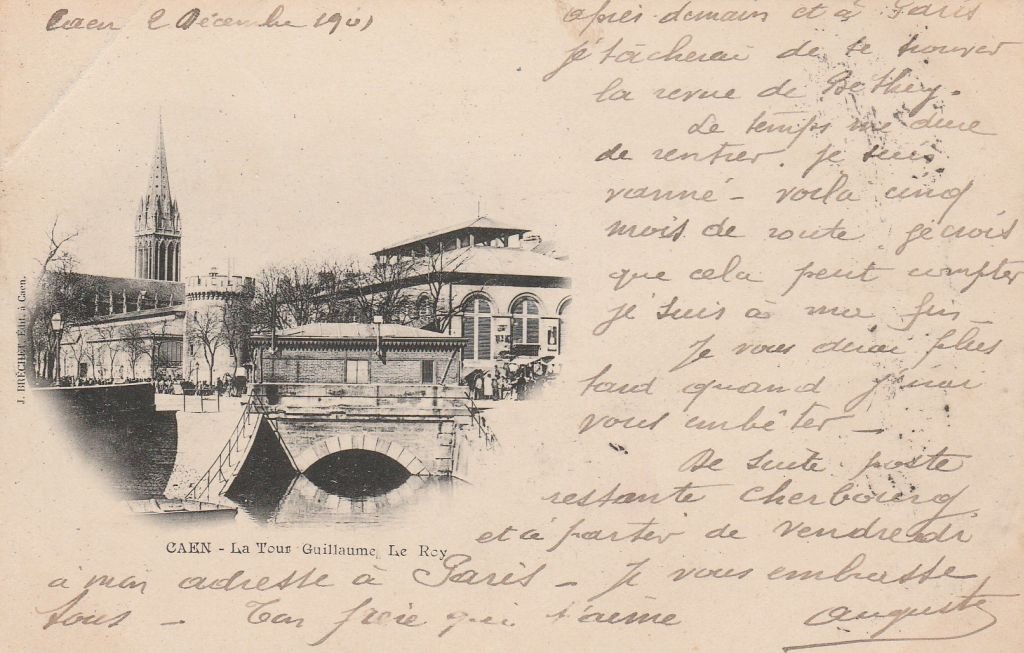 Caen 2 Décembre 1901
après demain et à Paris
je tâcherai de te trouver
la revue de Betheny.
Le temps me dure
de rentrer. je suis
vanné - voilà cinq
mois de route je crois
que cela peut compter
je suis à ma fin_
Je vous dirai plus
tard quand j'irai
vous embêter _
De suite poste
restante Cherbourg
et à partir de vendredi
à mon adresse à Paris _ Je vous embrasse
tous _ Ton frère qui t'aime
Auguste
J. BRÉCHET Édit. à Caen.
CAEN - La Tour Guillaume Le Roy